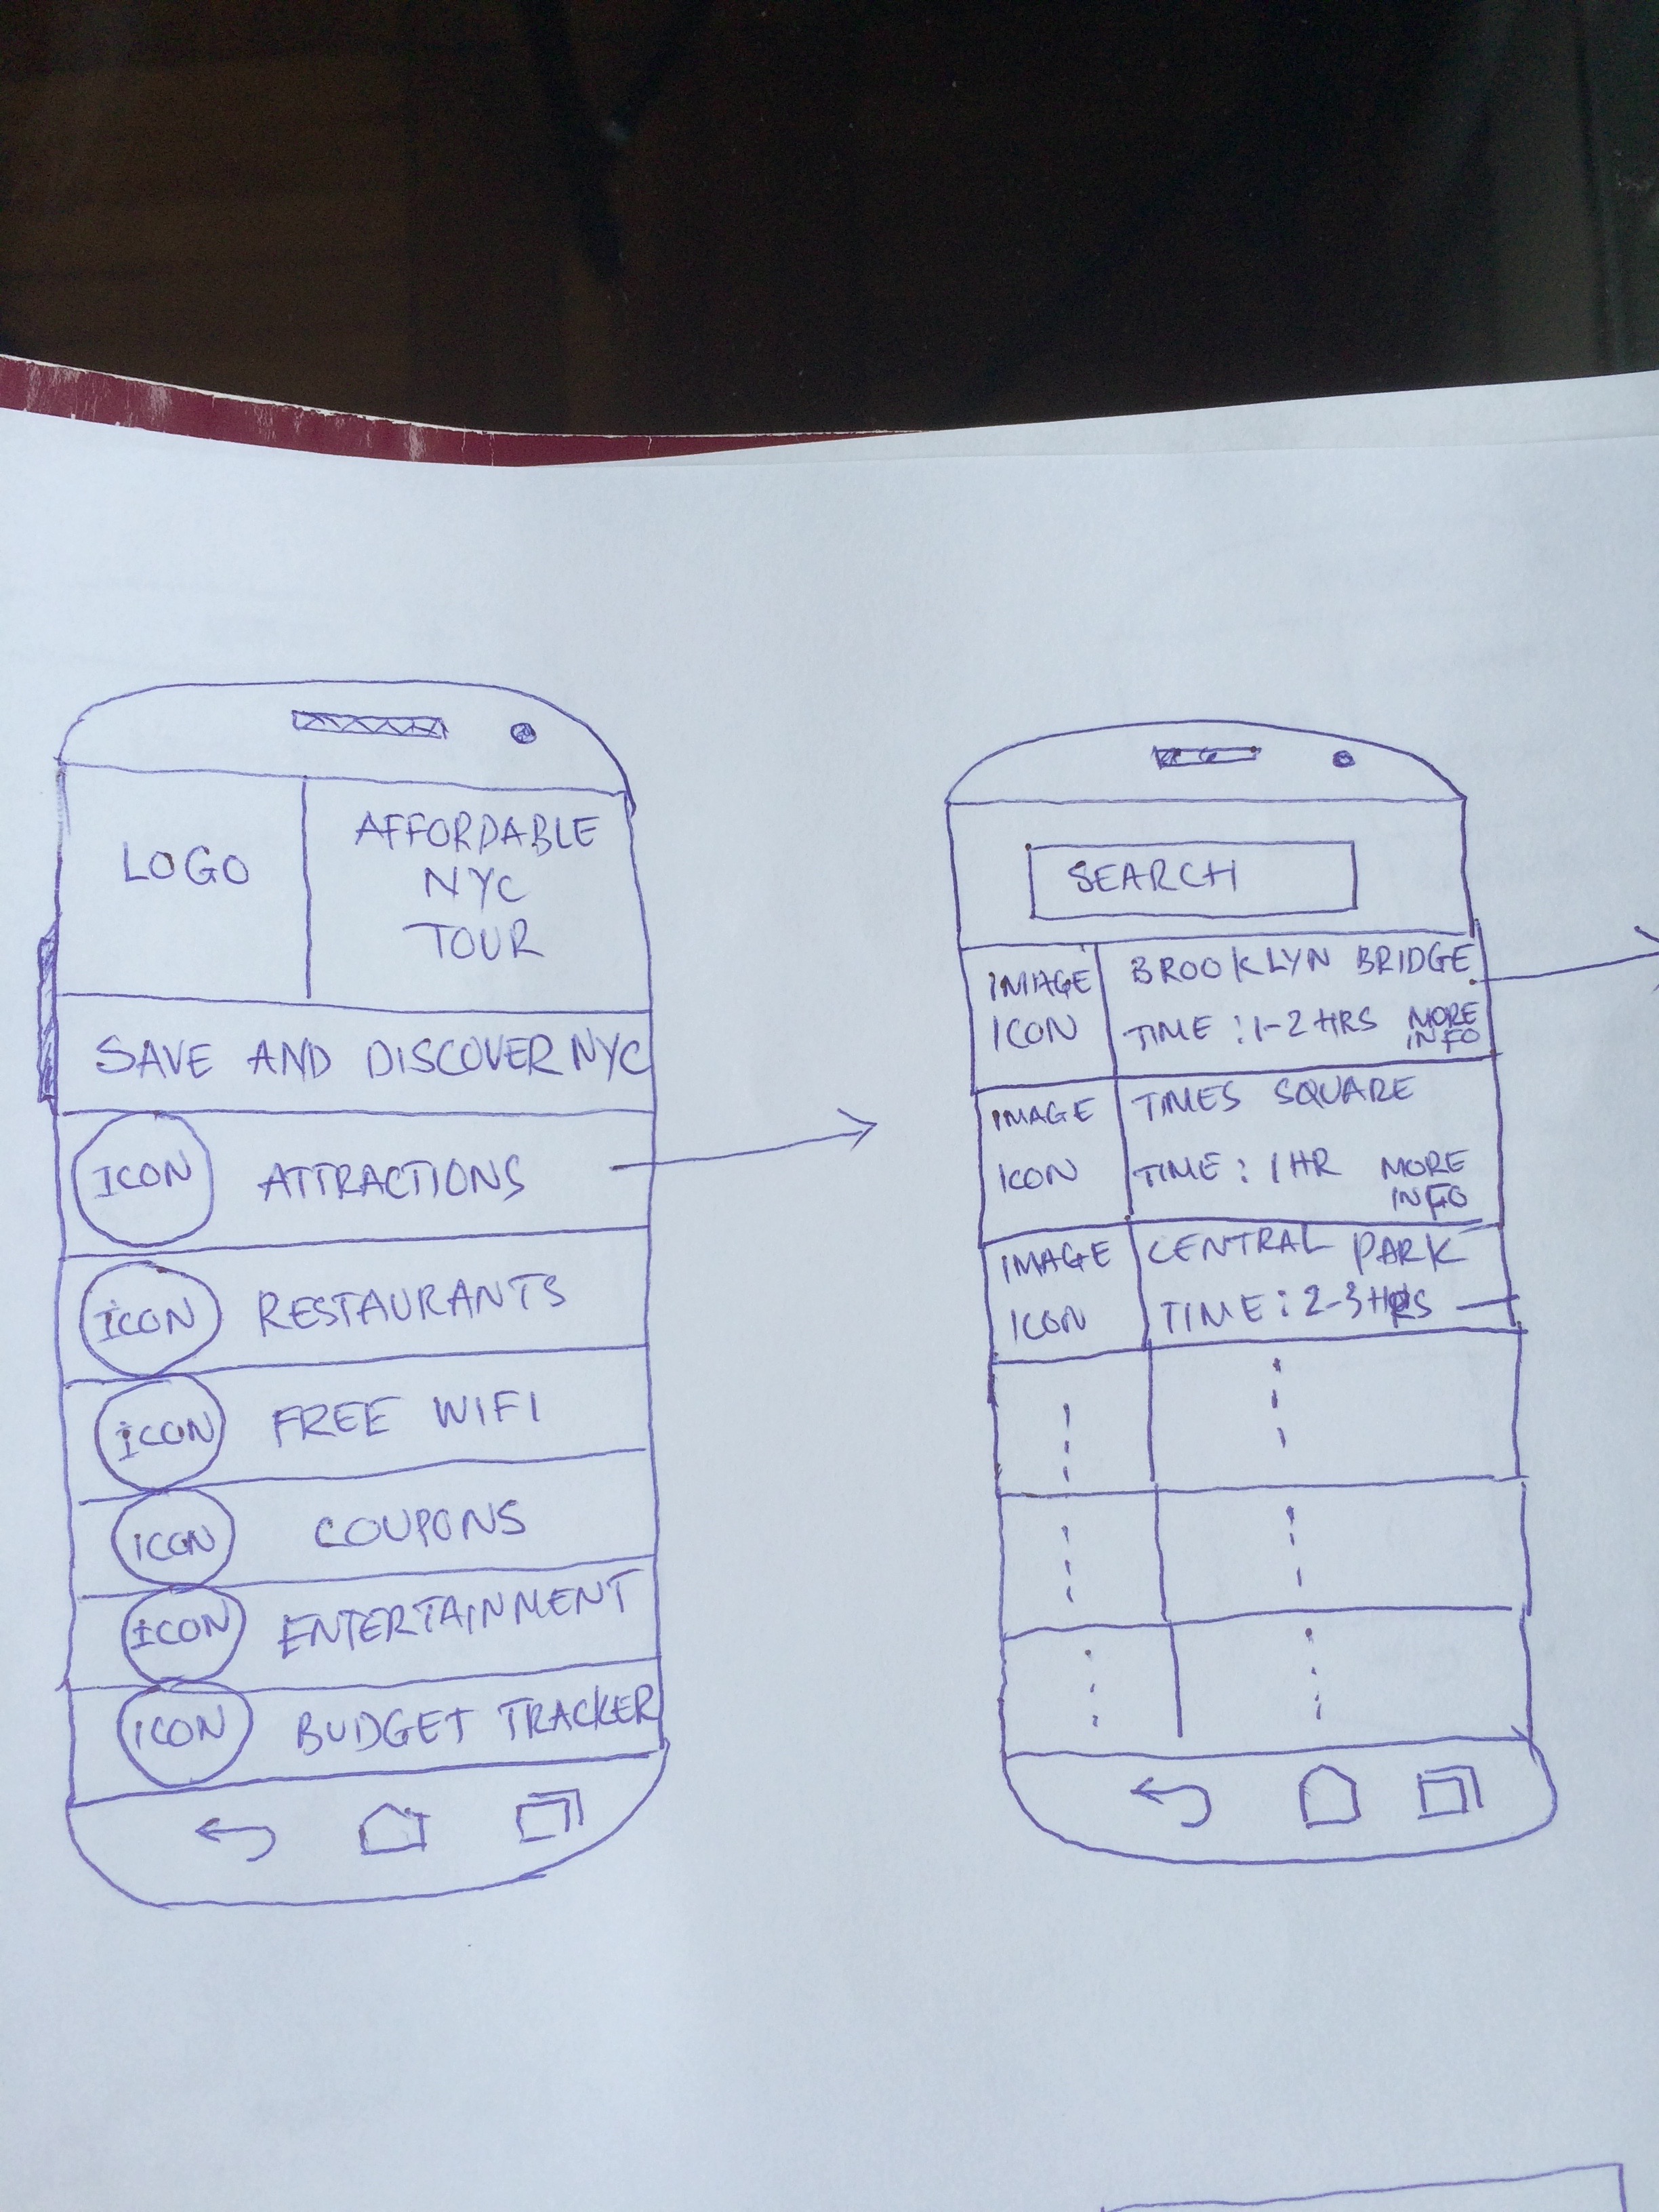 LOGO
AFFORDABLE
NYC
TOUR
SAVE AND DISCOVER NYC
ICON ATTRACTIONS
ICON RESTAURANTS
ICON FREE WIFI
ICON COUPONS
ICON ENTERTAINMENT
ICON BUDGET TRACKER
SEARCH
IMAGE
ICON
BROOKLYN BRIDGE
TIME: 1-2 HRS
MORE
INFO
IMAGE
ICON
TIMES SQUARE
TIME: 1 HR
MORE
INFO
IMAGE
ICON
CENTRAL PARK
TIME: 2-3 HRS